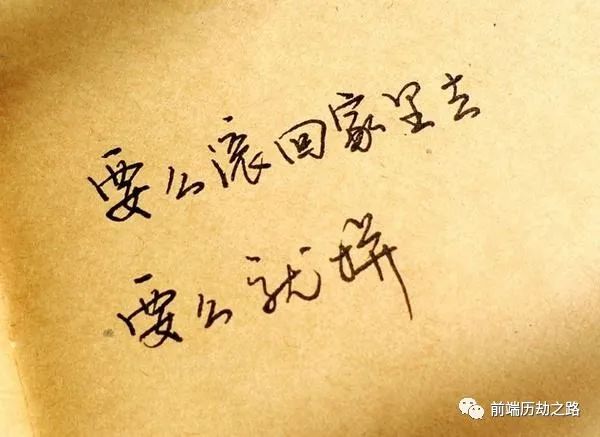 要么滚回家里去
要么就拼
前端历劫之路